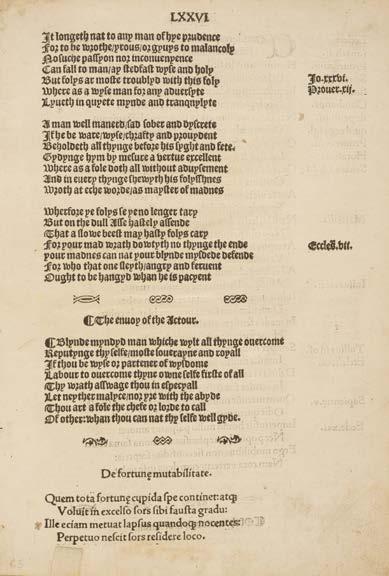 LXXVI
It longeth nat to any man of hye prudence
For to be wrothe/yrous/or gyuyn to malancoly
No suche passyon nor inconuenyence
Can fall to man/ay stedfast wyse and holy
But folys ar moste troublyd with this foly
Jo.xxxvi.
Where as a wyse man for any aduersyte
Prouer.xij.
Lyueth in quyete mynde and tranqnylyte
A man well manerd/sad sober and dyscrete
If he be ware/wyse/chrafty and prouydent
Beholdeth all thynge before his syght and fete.
Gydynge hym by mesure a vertue excellent
Where as a fole doth all without aduysement
And in euery thynge shewyth his folysshnes
Wroth at eche worde/as mayster of madnes
Wherfore ye folys se ye no lenger tary
But on the dull Asse hastely assende
That a slowe beest may hasty folys cary
For your mad wrath dowtyth no thynge the ende
Eccles.vii.
your madnes can nat your blynde mysdede defende
For who that one sleyth/angry and feruent
Ought to be hangyd whan he is pacyent
¶The enuoy of the Actour.
¶Blynde myndyd man whiche wylt all thynge ouercome
Reputynge thy selfe/moste souerayne and royall
If thou be wyse or partener of wysdome
Labour to ouercome thyne owne selfe firste of all
Thy wrath asswage thou in especyall
Let neyther malyce/nor yre with the abyde
Thou art a fole the chefe or lorde to call
Of other:whan thou can nat thy selfe well gyde.
De fortunę mutabilitate.
Quem tota fortunę cupida spe continet:atqꝫ
Voluit in excelso sors sibi fausta gradu:
Ille eciam metuat lapsus quandoqꝫ nocentes:
Perpetuo nescit sors residere loco.